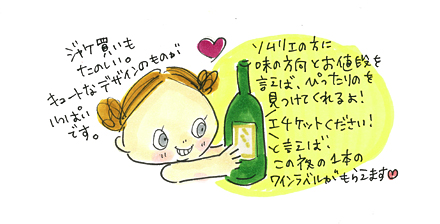 ジャケ買いも
たのしい。
キュートなデザインのものが
いっぱい
です。
ソムリエの方に
味の方向とお値段を
言えば、ぴったりのを
見つけてくれるよ!
エチケットください!
と言えば
この夜の1本の
ワインラベルがもらえます